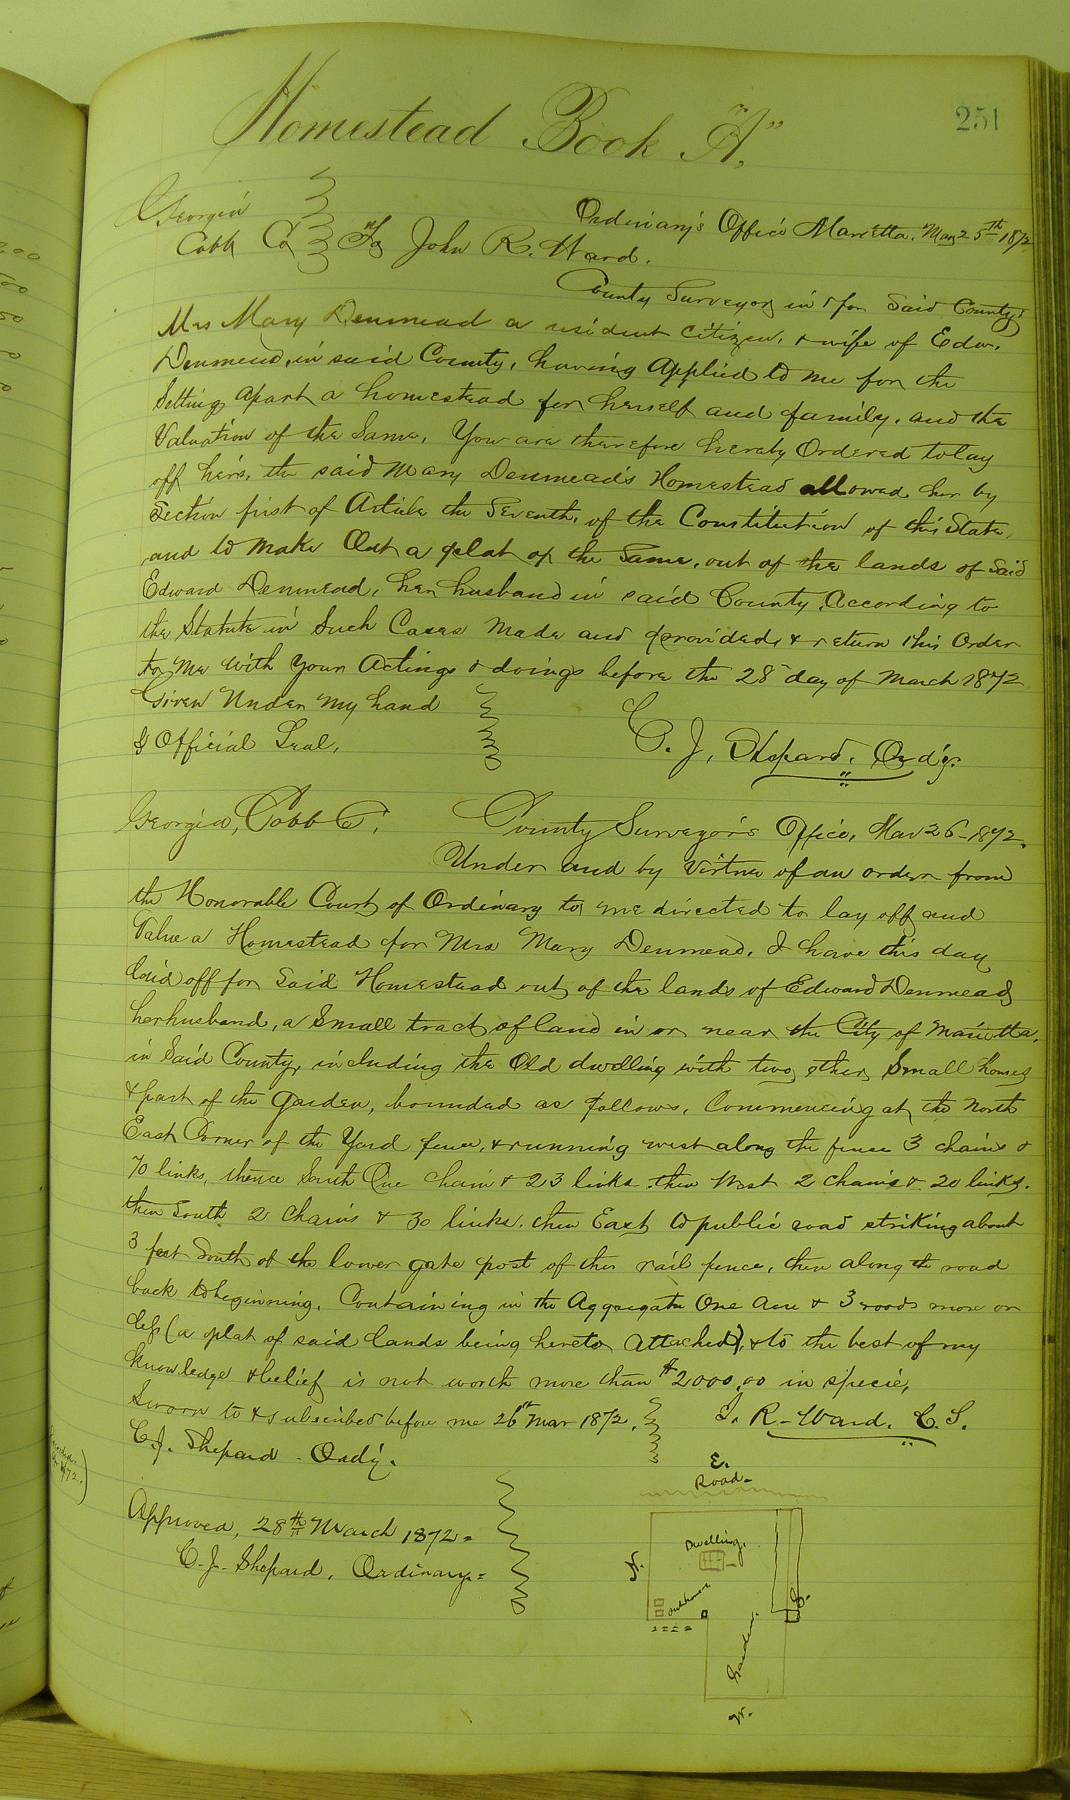 251
Homestead Book "A"
Georgia
Cobb Co To John R. Ward.
Ordinary's Office Marietta. Mar 25th 1872
County Surveyor in & for Said County,
Mrs Mary Denmead a resident citizen, & wife of Edw.
Denmead, in said County, having Applied to me for the
Setting apart a homestead for herself and family, and the
Valuation of the Same, You are therefore hereby Ordered to lay
off hers, the said Mary Denmead's Homestead allowed her by
Section first of Article the Seventh, of the Constitution of this State,
and to make Out a plat of the Same, out of the lands of Said
Edward Denmead, her husband in said County, According to
the Statute in Such Cases Made and provided, & return this Order
to Me with Your Actings & doings before the 28 day of March 1872
Given Under my hand
& Official Seal,
C. J. Shepard, Ord'y.
Georgia, Cobb Co, County Surveyor's Office, Mar 26 - 1872.
Under and by Virtue of an order from
the Honorable Court of Ordinary to me directed to lay off and
Value a Homestead for Mrs Mary Denmead, I have this day
laid off for Said Homestead out of the lands of Edward Denmead,
her husband, a Small tract of land in or near the City of Marietta,
in Said County, including the Old dwelling with two other Small houses
& part of the Garden, bounded as follows, Commencing at the North
East Corner of the Yard fence, & running west along the fence 3 chains &
70 links, thence South One chain & 23 links, then West 2 chains & 20 links,
then South 2 Chains & 30 links, then East to public road striking about
3 feet South of the lower gate post of this rail fence, then along the road
back to beginning, Containing in the Aggregate One Acre & 3 roods more or
less (a plat of said lands being hereto attached), & to the best of my
knowledge & belief is not worth more than $2000.00 in specie,
Sworn to & subscribed before me 26th Mar 1872. J. R. Ward. C. S.
C. J. Shepard - Ord'y.
Approved, 28th March 1872 =
C. J. Shepard, Ordinary =
E.
Road -
N.
Dwelling.
outhouse
S.
Garden.
W.